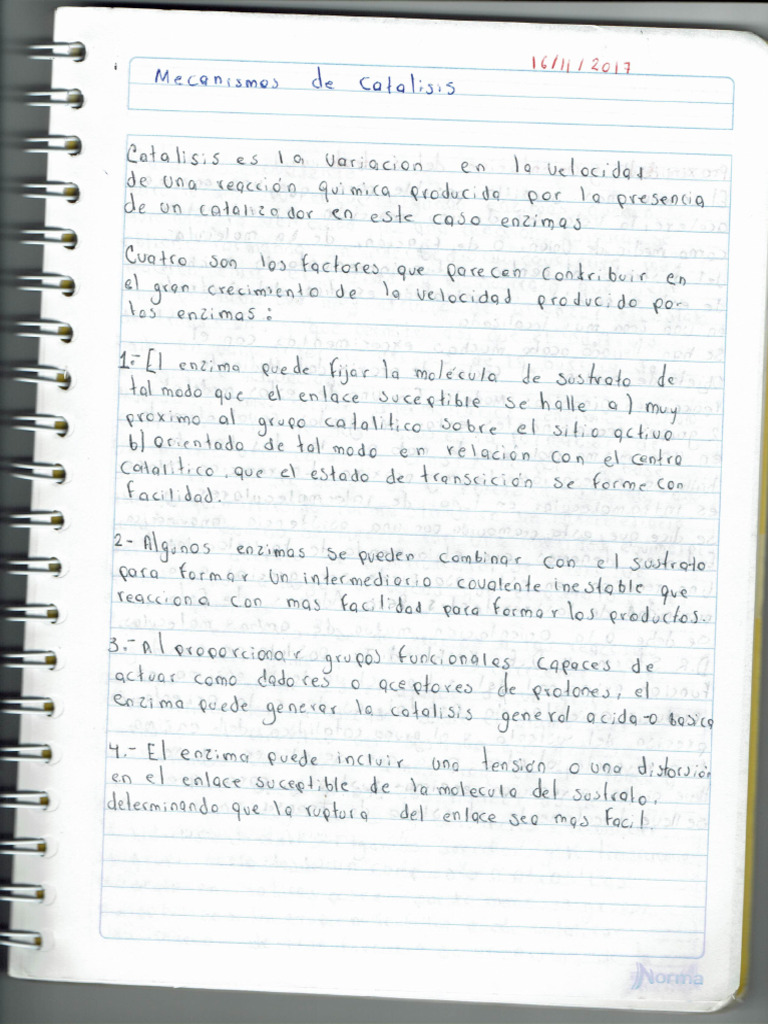 16/11/2017
Mecanismos de Catalisis
Catalisis es la variacion en la velocidad
de una reacción quimica producida por la presencia
de un catalizador en este caso enzimas.
Cuatro son los factores que parecen contribuir en
el gran crecimiento de la velocidad producido por
las enzimas:
1.- El enzima puede fijar la molécula de sustrato de
tal modo que el enlace suceptible se halle a) muy
próximo al grupo catalitico sobre el sitio activo
b) orientado de tal modo en relación con el centro
catalitico, que el estado de transcición se forme con
facilidad.
2- Algunos enzimas se pueden combinar con el sustrato
para formar un intermediario covalente inestable que
reacciona con mas facilidad para formar los productos.
3.- Al proporcionar grupos funcionales capaces de
actuar como dadores o aceptores de protones, el
enzima puede generar la catalisis general acida-o basica
4.- El enzima puede incluir una tensión o una distorsión
en el enlace suceptible de la molecula del sustrato,
determinando que la ruptura del enlace sea mas facil.
Norma